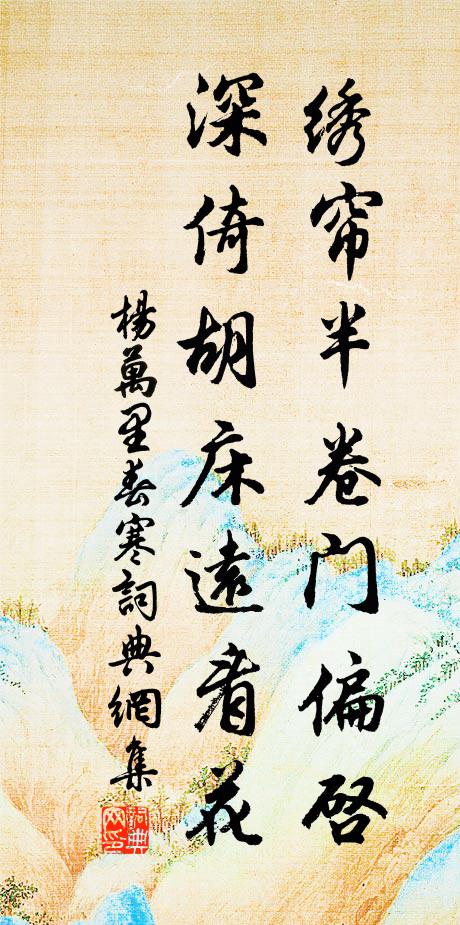 绣帘半卷门偏启
深倚胡床远看花
楊萬里春寒詞典網集
詞典网印